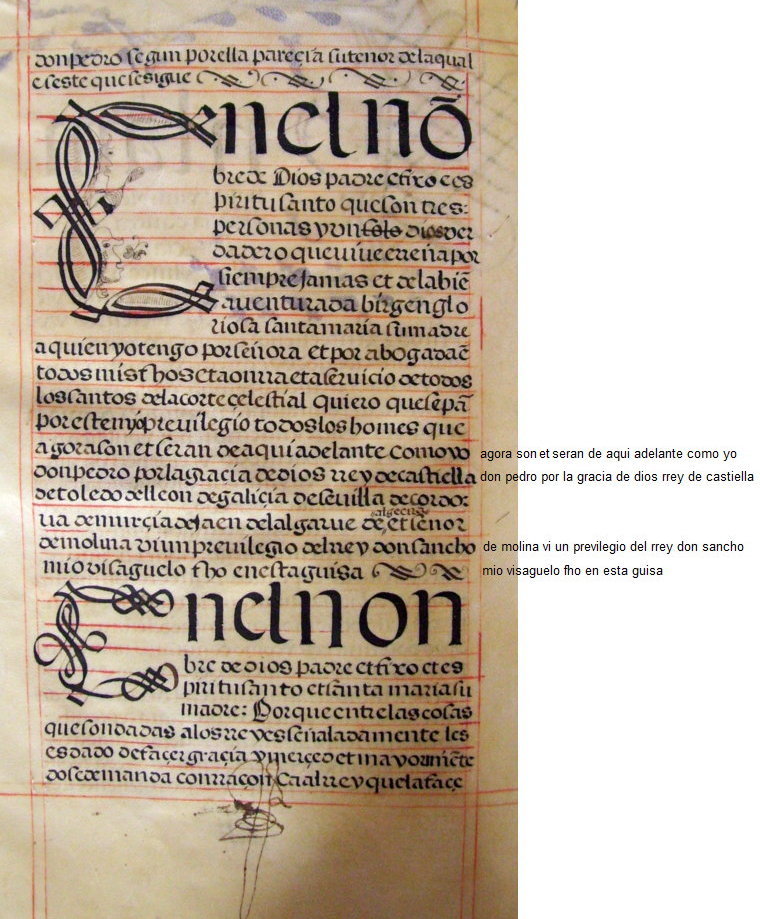 don pedro segun por ella parecia su tenor de la qual
e se este que se sigue
En el nõ
bre de Dios padre et fixo e es
piritu santo que son tres:
personas y un solo dios ver
dadero que uiue e reña por
siempre jamas et de la biẽ
auenturada birgen glo
riosa santa maria su madre
a quien yo tengo por señora et por abogada ẽ
todos mis fhos et a onrra et a seruicio de todos
los santos de la corte çelestial quiero que sepã
por este myo preuilegio todos los homes que
agora son et seran de aqui adelante como yo agora son et seran de aqui adelante como yo
don pedro por la gracia de dios rrey de castiella don pedro por la gracia de dios rrey de castiella
de toledo de lleon de galiçia de seuilla de cordo:
algecira
ua de murçia de Jaen del algarue de, et senor
de molina vi un preuilegio del rrey don sancho de molina vi un previlegio del rrey don sancho
mio visaguelo fho en esta guisa mio visaguelo fho en esta guisa
En el non
bre de dios padre et fixo et es
piritu santo et santa maria su
madre: Porque entre las cosas
que son dadas a los rreyes señaladamente les
es dado de façer graçia y merçed et mayormẽte
do se demanda con rraçon Ca al rrey que la façe